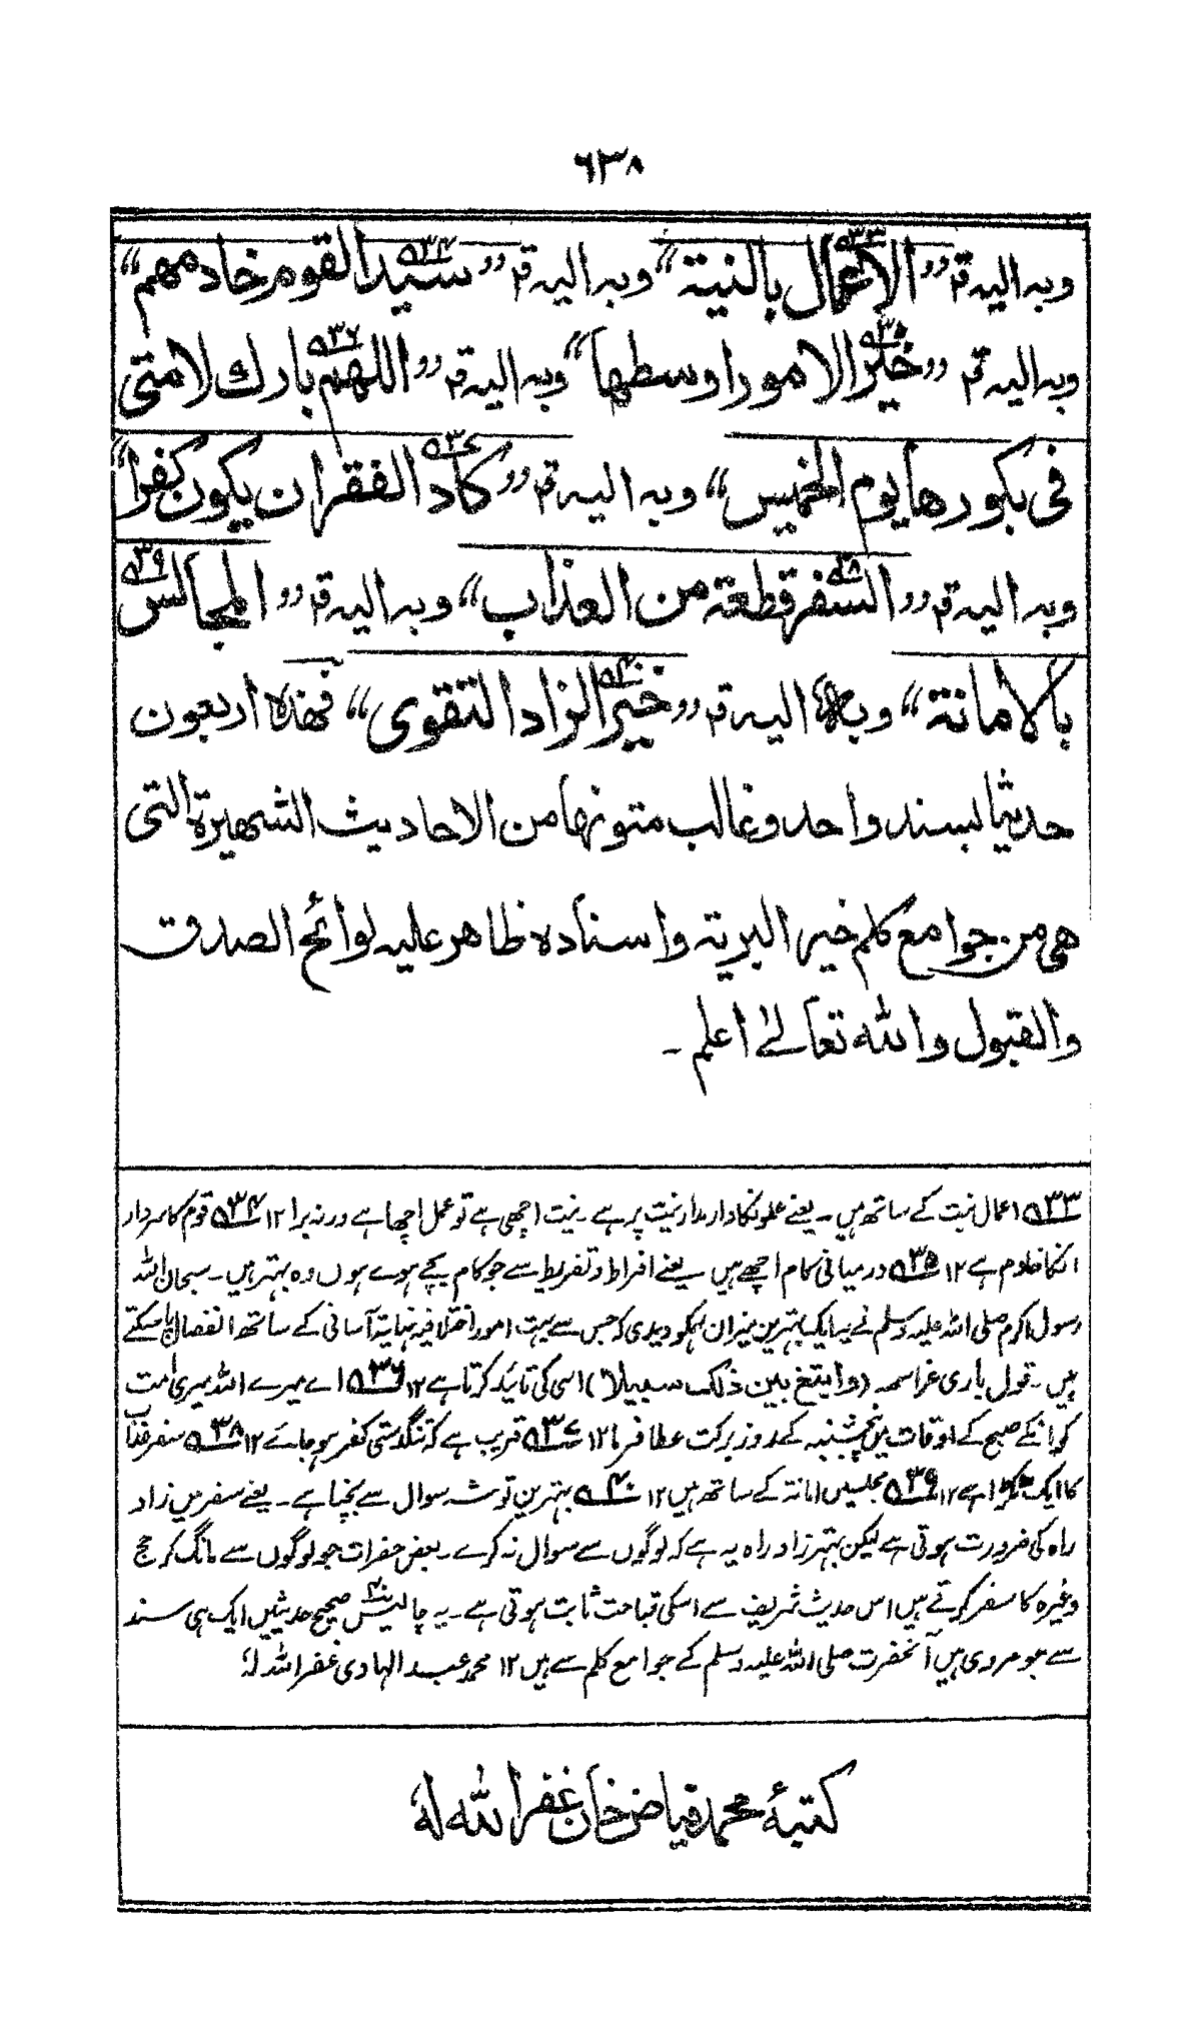 ۶۳۸
وبہ الیہ قہ ”الاعمال بالنیة“ ۵۳۳ وبہ الیہ قہ ”سید القوم خادمهم“ ۵۳۴
وبہ الیہ قہ ”خیر الامور اوسطها“ ۵۳۵ وبہ الیہ قہ ”اللهم بارك لامتی ۵۳۶
فی بکورها یوم الخمیس“ وبہ الیہ قہ ”کاد الفقر ان یکون کفرا“ ۵۳۷
وبہ الیہ قہ ”السفر قطعة من العذاب“ ۵۳۸ وبہ الیہ قہ ”المجالس ۵۳۹
بالامانة“ وبہ الیہ قہ ”خیر الزاد التقوی“ ۵۴۰ فهذه اربعون
حدیثا بسند واحد وغالب متونها من الاحادیث الشهیرة التی
هی من جوامع کلم خیر البریة واسناده ظاهر علیه لوائح الصدق
والقبول والله تعالیٰ اعلم ۔
۵۳۳ اعمال نیت کے ساتھ ہیں ۔ یعنے عملونکا دار مدار نیت پر ہے ۔ نیت اچھی ہے تو عمل اچھا ہے ورنہ برا ۱۲ ۵۳۴ قوم کا سردار
انکا خادم ہے ۱۲ ۵۳۵ درمیانی کام اچھے ہیں یعنے افراط و تفریط سے جو کام بچے ہوے ہوں وہ بہتر ہیں ۔ سبحان اللہ
رسول اکرم صلی اللہ علیہ وسلم نے یہ ایک بہترین میزان ہمکو دیدی کہ جس سے بہت امور اختلافیہ نہایۃ آسانی کے ساتھ انفصال پا سکتے
ہیں ۔ قول باری عز اسمہ (وابتغ بین ذلک سبیلا) اسی کی تائید کرتا ہے ۱۲ ۵۳۶ اے میرے اللہ میری امت
کو انکے صبح کے اوقات میں پنجشنبہ کے روز برکت عطا فرما ۱۲ ۵۳۷ قریب ہے کہ تنگدستی کفر ہو جائے ۱۲ ۵۳۸ سفر عذاب
کا ایک ٹکڑا ہے ۱۲ ۵۳۹ مجلسیں امانۃ کے ساتھ ہیں ۱۲ ۵۴۰ بہترین توشہ سوال سے بچنا ہے ۔ یعنے سفر میں زاد
راہ کی ضرورت ہوتی ہے لیکن بہتر زاد راہ یہ ہے کہ لوگوں سے سوال نہ کرے ۔ بعض حضرات جو لوگوں سے مانگ کر حج
وغیرہ کا سفر کرتے ہیں اس حدیث شریف سے اسکی قباحت ثابت ہوتی ہے ۔ یہ چالیس ۴۰ صحیح حدیثیں ایک ہی سند
سے جو مروی ہیں آنحضرت صلی اللہ علیہ وسلم کے جوامع کلم سے ہیں ۱۲ محمد عبد الہادی غفر اللہ لہٗ
کتبہٗ محمد فیاض خان غفر اللہ لہٗ